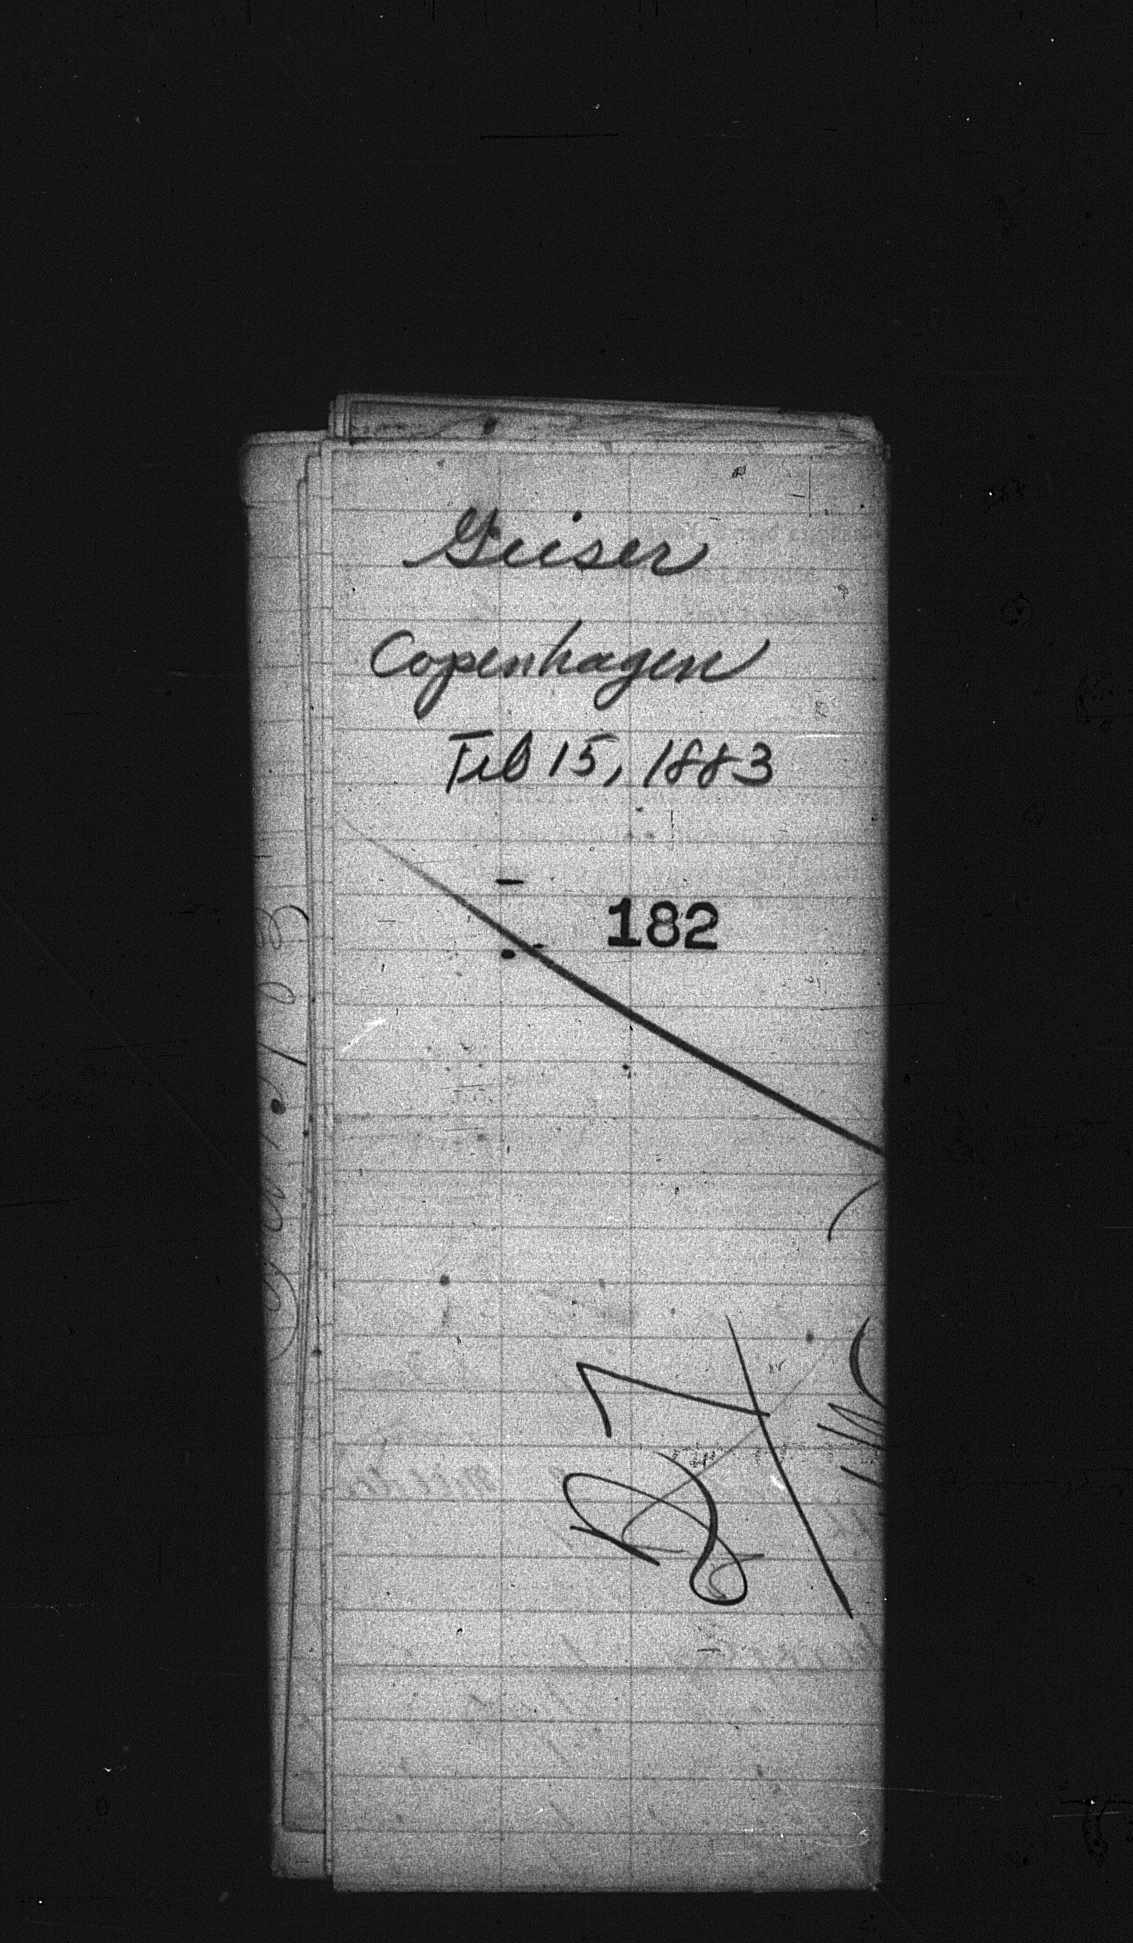 Geiser
Copenhagen
Feb 15, 1883
182